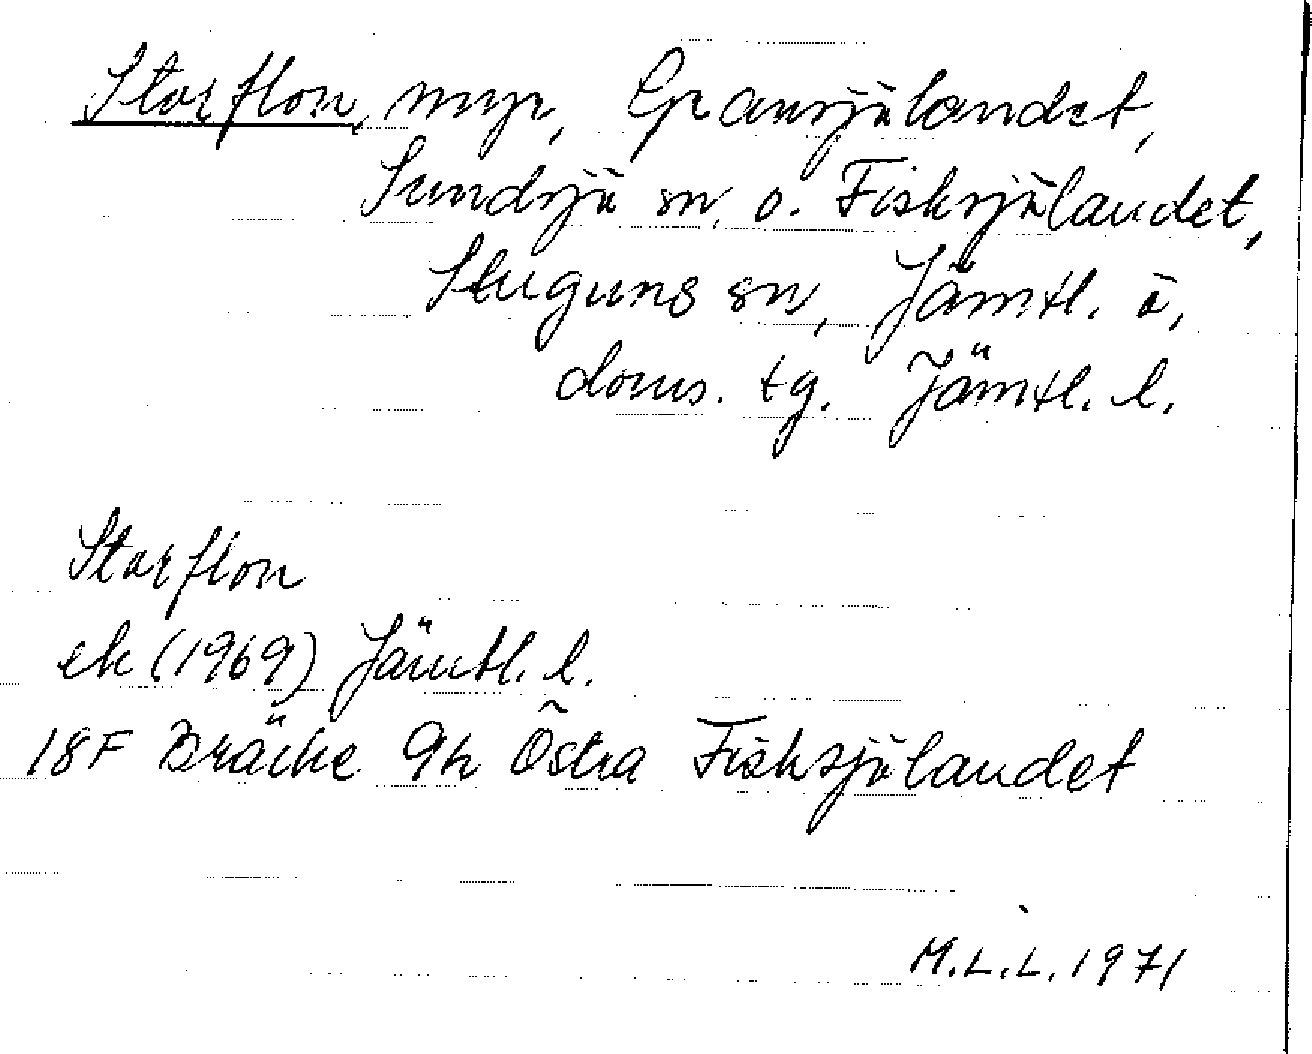 Storflon, myr, Gransjölandet,
Sundsjö sn, o. Fisksjölandet,
Stuguns sn, Jämtl. ö,
doms. tg. Jämtl. l.
Storflon
ek (1969) Jämtl. l.
18F Bräcke 9h Östra Fisksjölandet
M.L.L. 1971